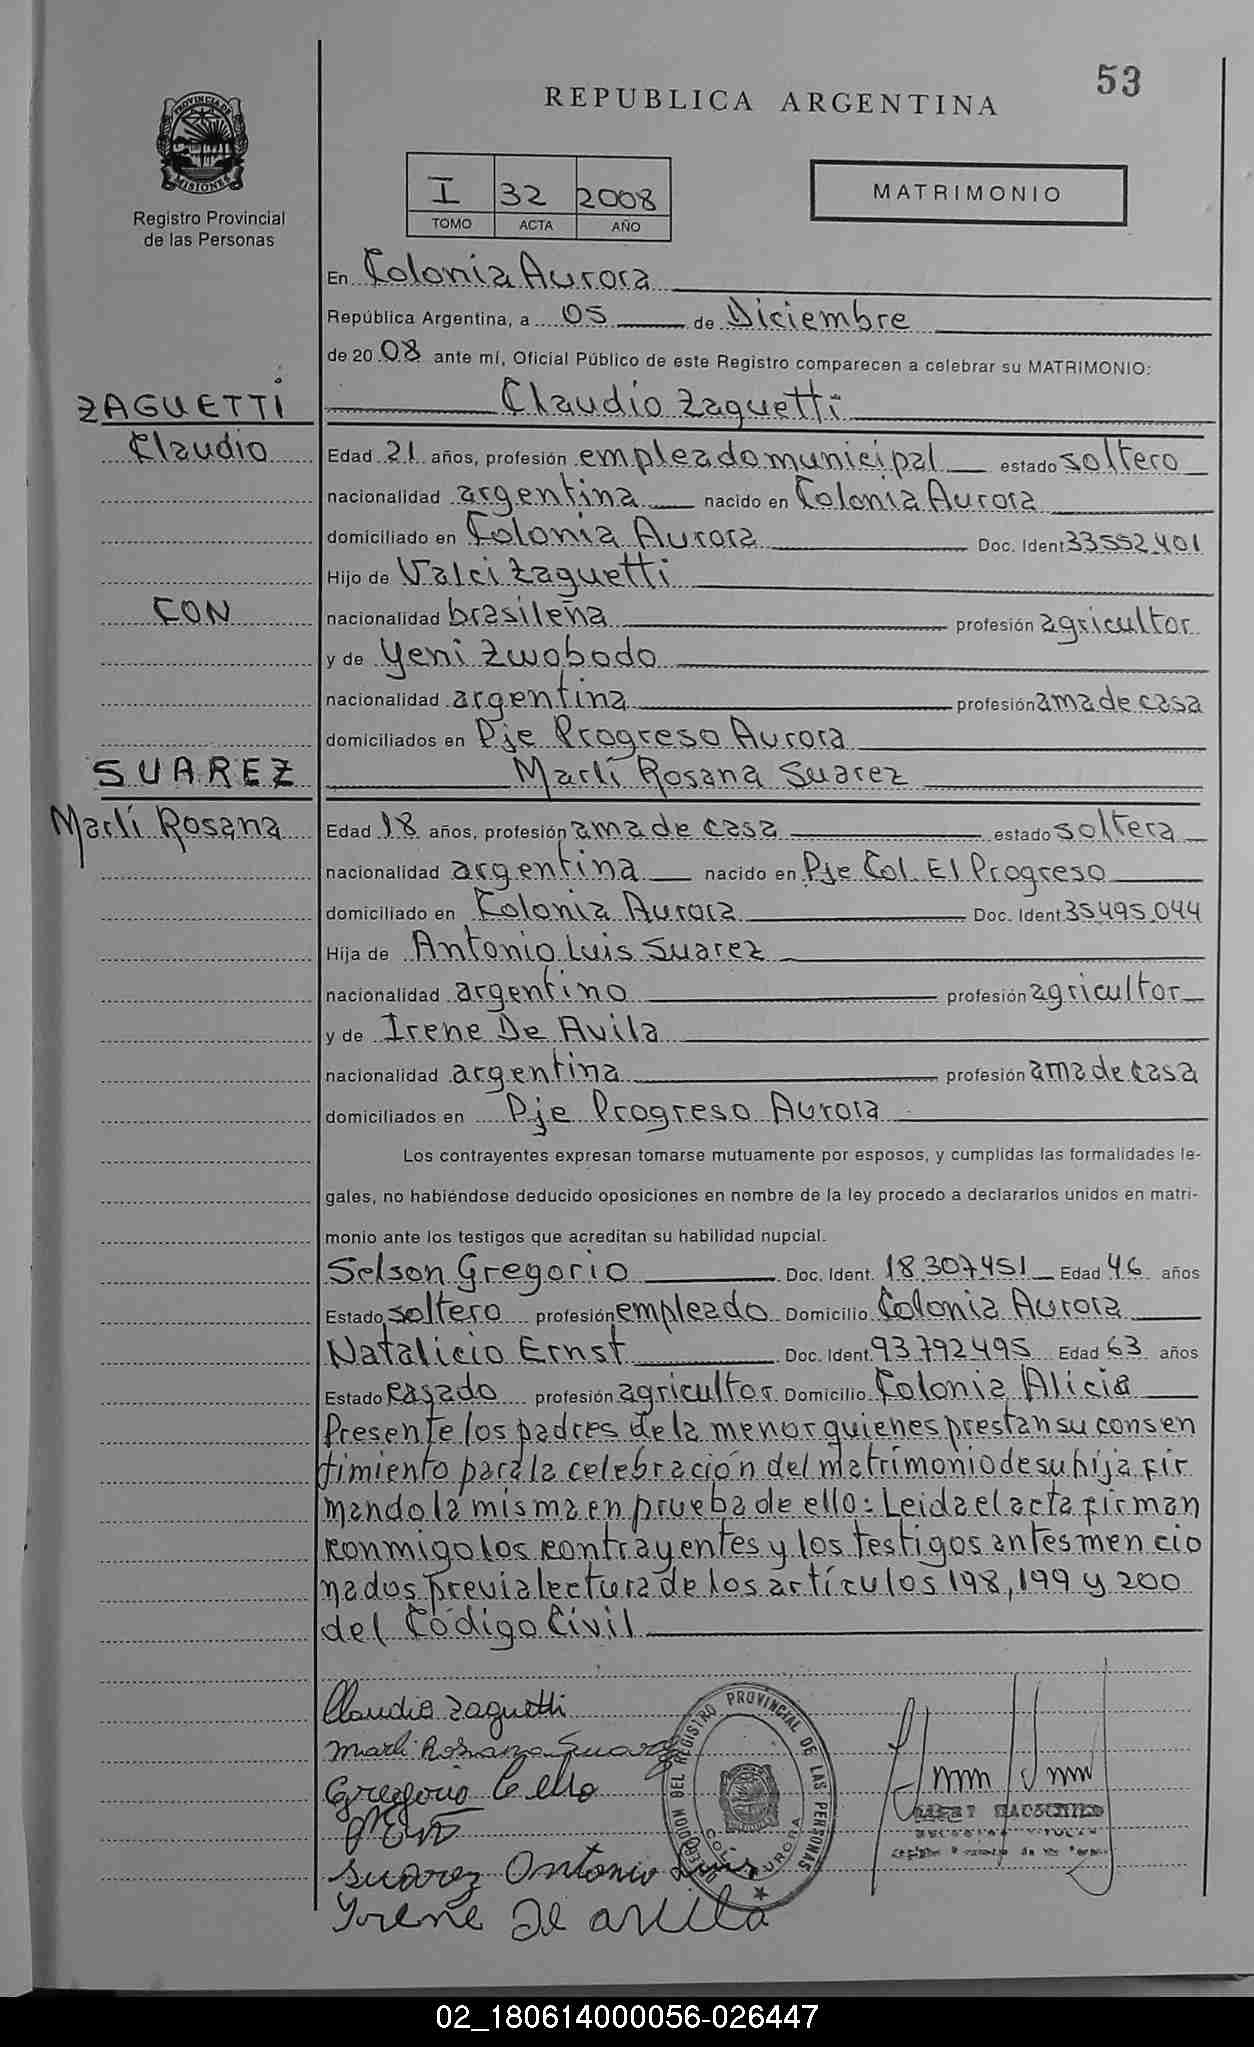 53
REPUBLICA ARGENTINA
PROVINCIA DE
MISIONES
Registro Provincial
de las Personas
I 32 2008
TOMO ACTA AÑO
MATRIMONIO
En Colonia Aurora
República Argentina, a 05 de Diciembre
de 2008 ante mí, Oficial Público de este Registro comparecen a celebrar su MATRIMONIO:
ZAGUETTI Claudio Zaguetti
Claudio Edad 21 años, profesión empleado municipal estado soltero
nacionalidad argentina nacido en Colonia Aurora
domiciliado en Colonia Aurora Doc. Ident 33552401
Hijo de Valci Zaguetti
CON nacionalidad brasileña profesión agricultor
y de Yeni Zwobodo
nacionalidad argentina profesión ama de casa
domiciliados en Pje Progreso Aurora
SUAREZ Marlí Rosana Suarez
Marlí Rosana Edad 18 años, profesión ama de casa estado soltera
nacionalidad argentina nacido en Pje Col El Progreso
domiciliado en Colonia Aurora Doc. Ident 35495044
Hija de Antonio Luis Suarez
nacionalidad argentino profesión agricultor
y de Irene De Avila
nacionalidad argentina profesión ama de casa
domiciliados en Pje Progreso Aurora
Los contrayentes expresan tomarse mutuamente por esposos, y cumplidas las formalidades le-
gales, no habiéndose deducido oposiciones en nombre de la ley procedo a declararlos unidos en matri-
monio ante los testigos que acreditan su habilidad nupcial.
Selson Gregorio Doc. Ident. 18307451 Edad 46 años
Estado soltero profesión empleado Domicilio Colonia Aurora
Natalicio Ernst Doc. Ident. 93792495 Edad 63 años
Estado casado profesión agricultor Domicilio Colonia Alicia
Presente los padres de la menor quienes prestan su consen
timiento para la celebración del matrimonio de su hija fir
mando la misma en prueba de ello: Leida el acta firman
conmigo los contrayentes y los testigos antes mencio
nados previa lectura de los artículos 198, 199 y 200
del Código Civil
Claudio Zaguetti
Marli Rosana Suarez
Gregorio
Suarez Antonio Luis
Irene De avila
DIRECCION DEL REGISTRO PROVINCIAL DE LAS PERSONAS
COL. AURORA
02_180614000056-026447